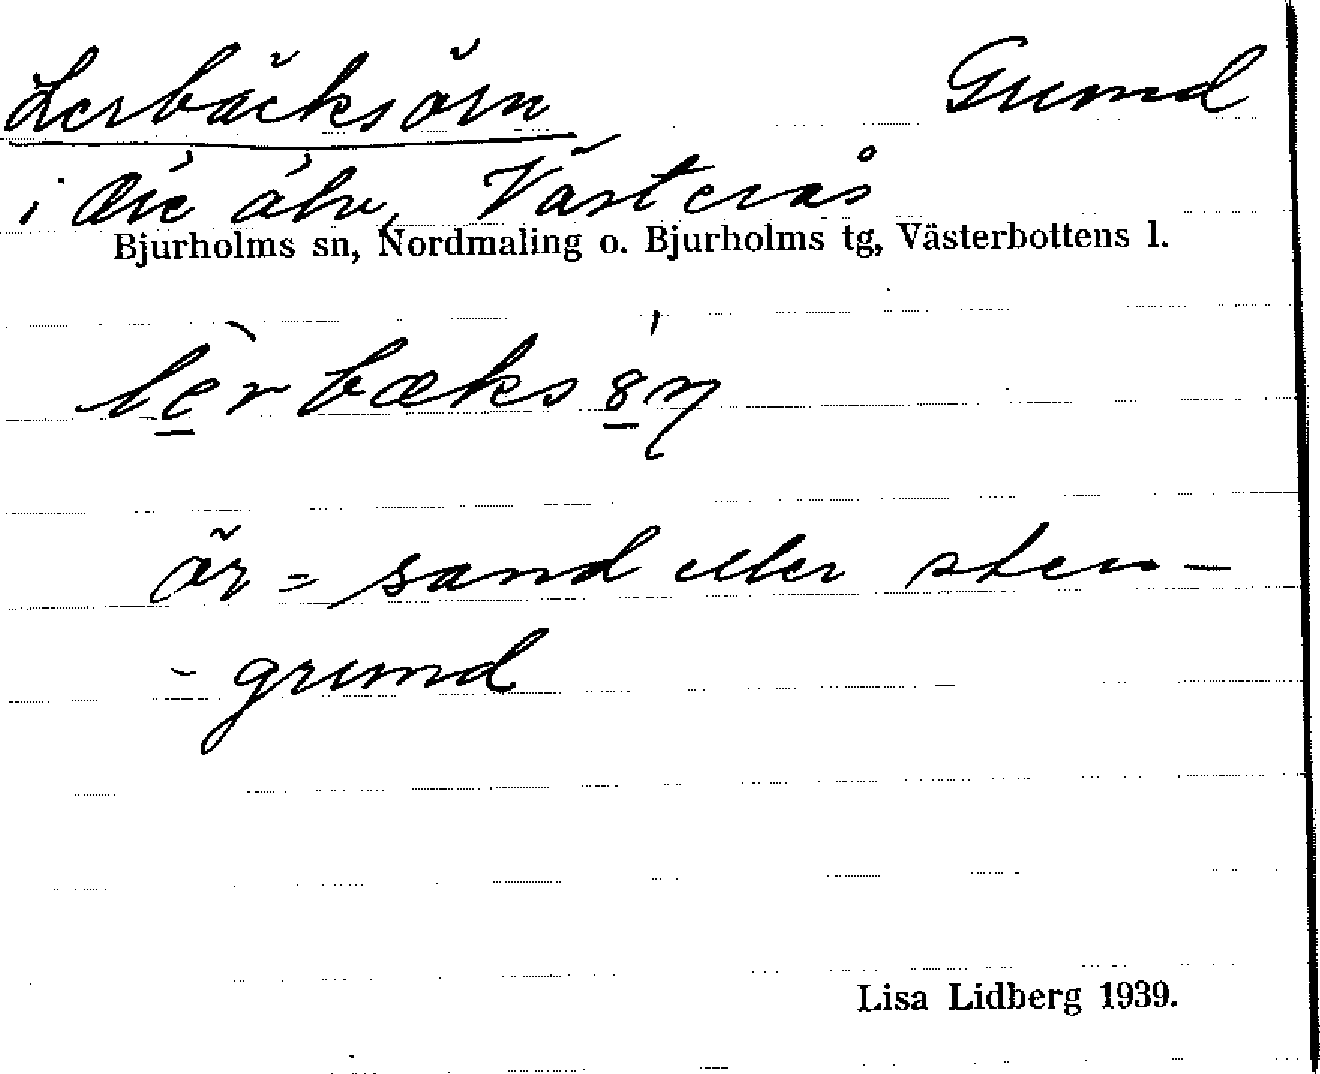 Lerbäcksörn Grund
i Öre älv, Västerås
Bjurholms sn, Nordmaling o. Bjurholms tg, Västerbottens l.
lèrbæks
ör = sand eller sten-
- grund
Lisa Lidberg 1939.